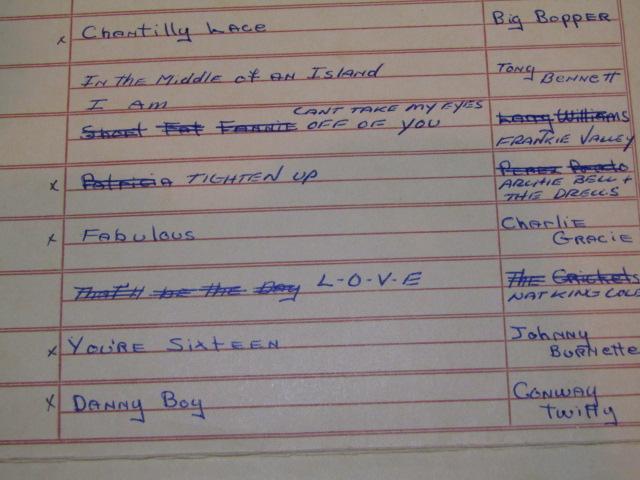 x Chantilly Lace Big Bopper
In the Middle of an Island Tony
Bennett
I Am
CANT TAKE MY EYES
Short Fat Fannie OFF OF YOU Larry Williams
FRANKIE VALLEY
x Patricia TIGHTEN UP Perez Prado
ARCHIE BELL +
THE DRELLS
x Fabulous Charlie
Gracie
That'll be the Day L-O-V-E The Crickets
NAT KING COLE
x You're Sixteen Johnny
Burnette
x Danny Boy Conway
Twitty